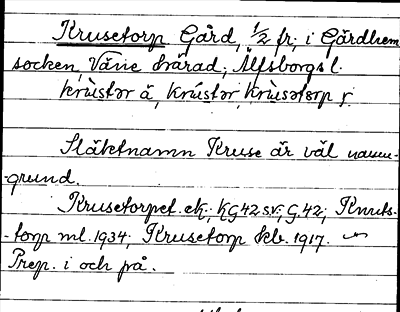 Krusetorp Gård, 1/2 fr; i Gärdhem
socken, Väne härad; Älfsborgs l.
krùstər å, krústər, krùsətorp f.
Släktnamn Kruse är väl namn-
grund.
Krusetorpet. ek.; KG42 SV; G.42; Knuts-
-torp ml. 1934; Krusetorp skb. 1917.
Prep. i och på.